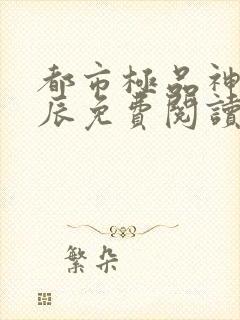 都市極品神
辰免費閱讀
繁朵